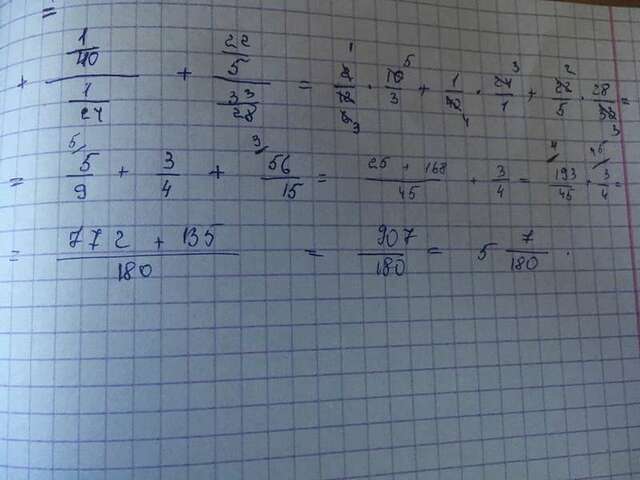 =
+ \frac{\frac{1}{40}}{\frac{1}{27}} + \frac{\frac{22}{5}}{\frac{33}{28}} = \frac{}{} \cdot \frac{10}{3} + \frac{1}{} \cdot \frac{27}{1} + \frac{22}{5} \cdot \frac{28}{} =
= \frac{5}{9} + \frac{3}{4} + \frac{56}{15} = \frac{25 + 168}{45} + \frac{3}{4} = \frac{193}{45} + \frac{3}{4} =
= \frac{772 + 135}{180} = \frac{907}{180} = 5 \frac{7}{180} .